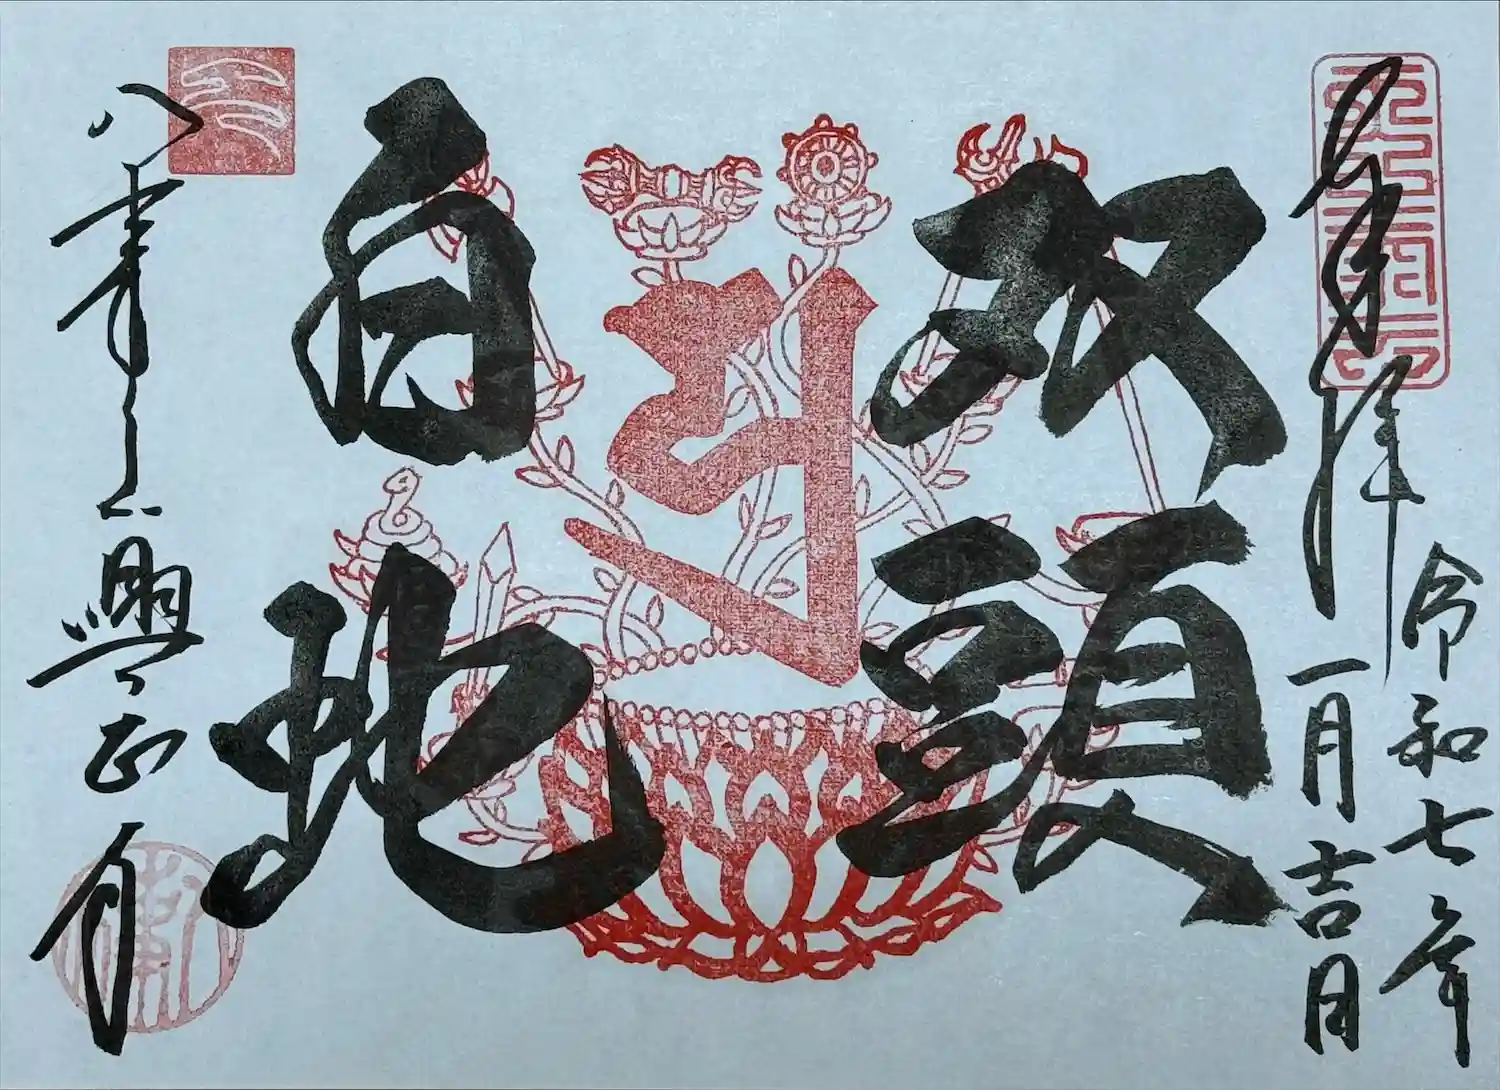 奉拝
令和七年
一月吉日
双頭
白虵
八事山興正寺